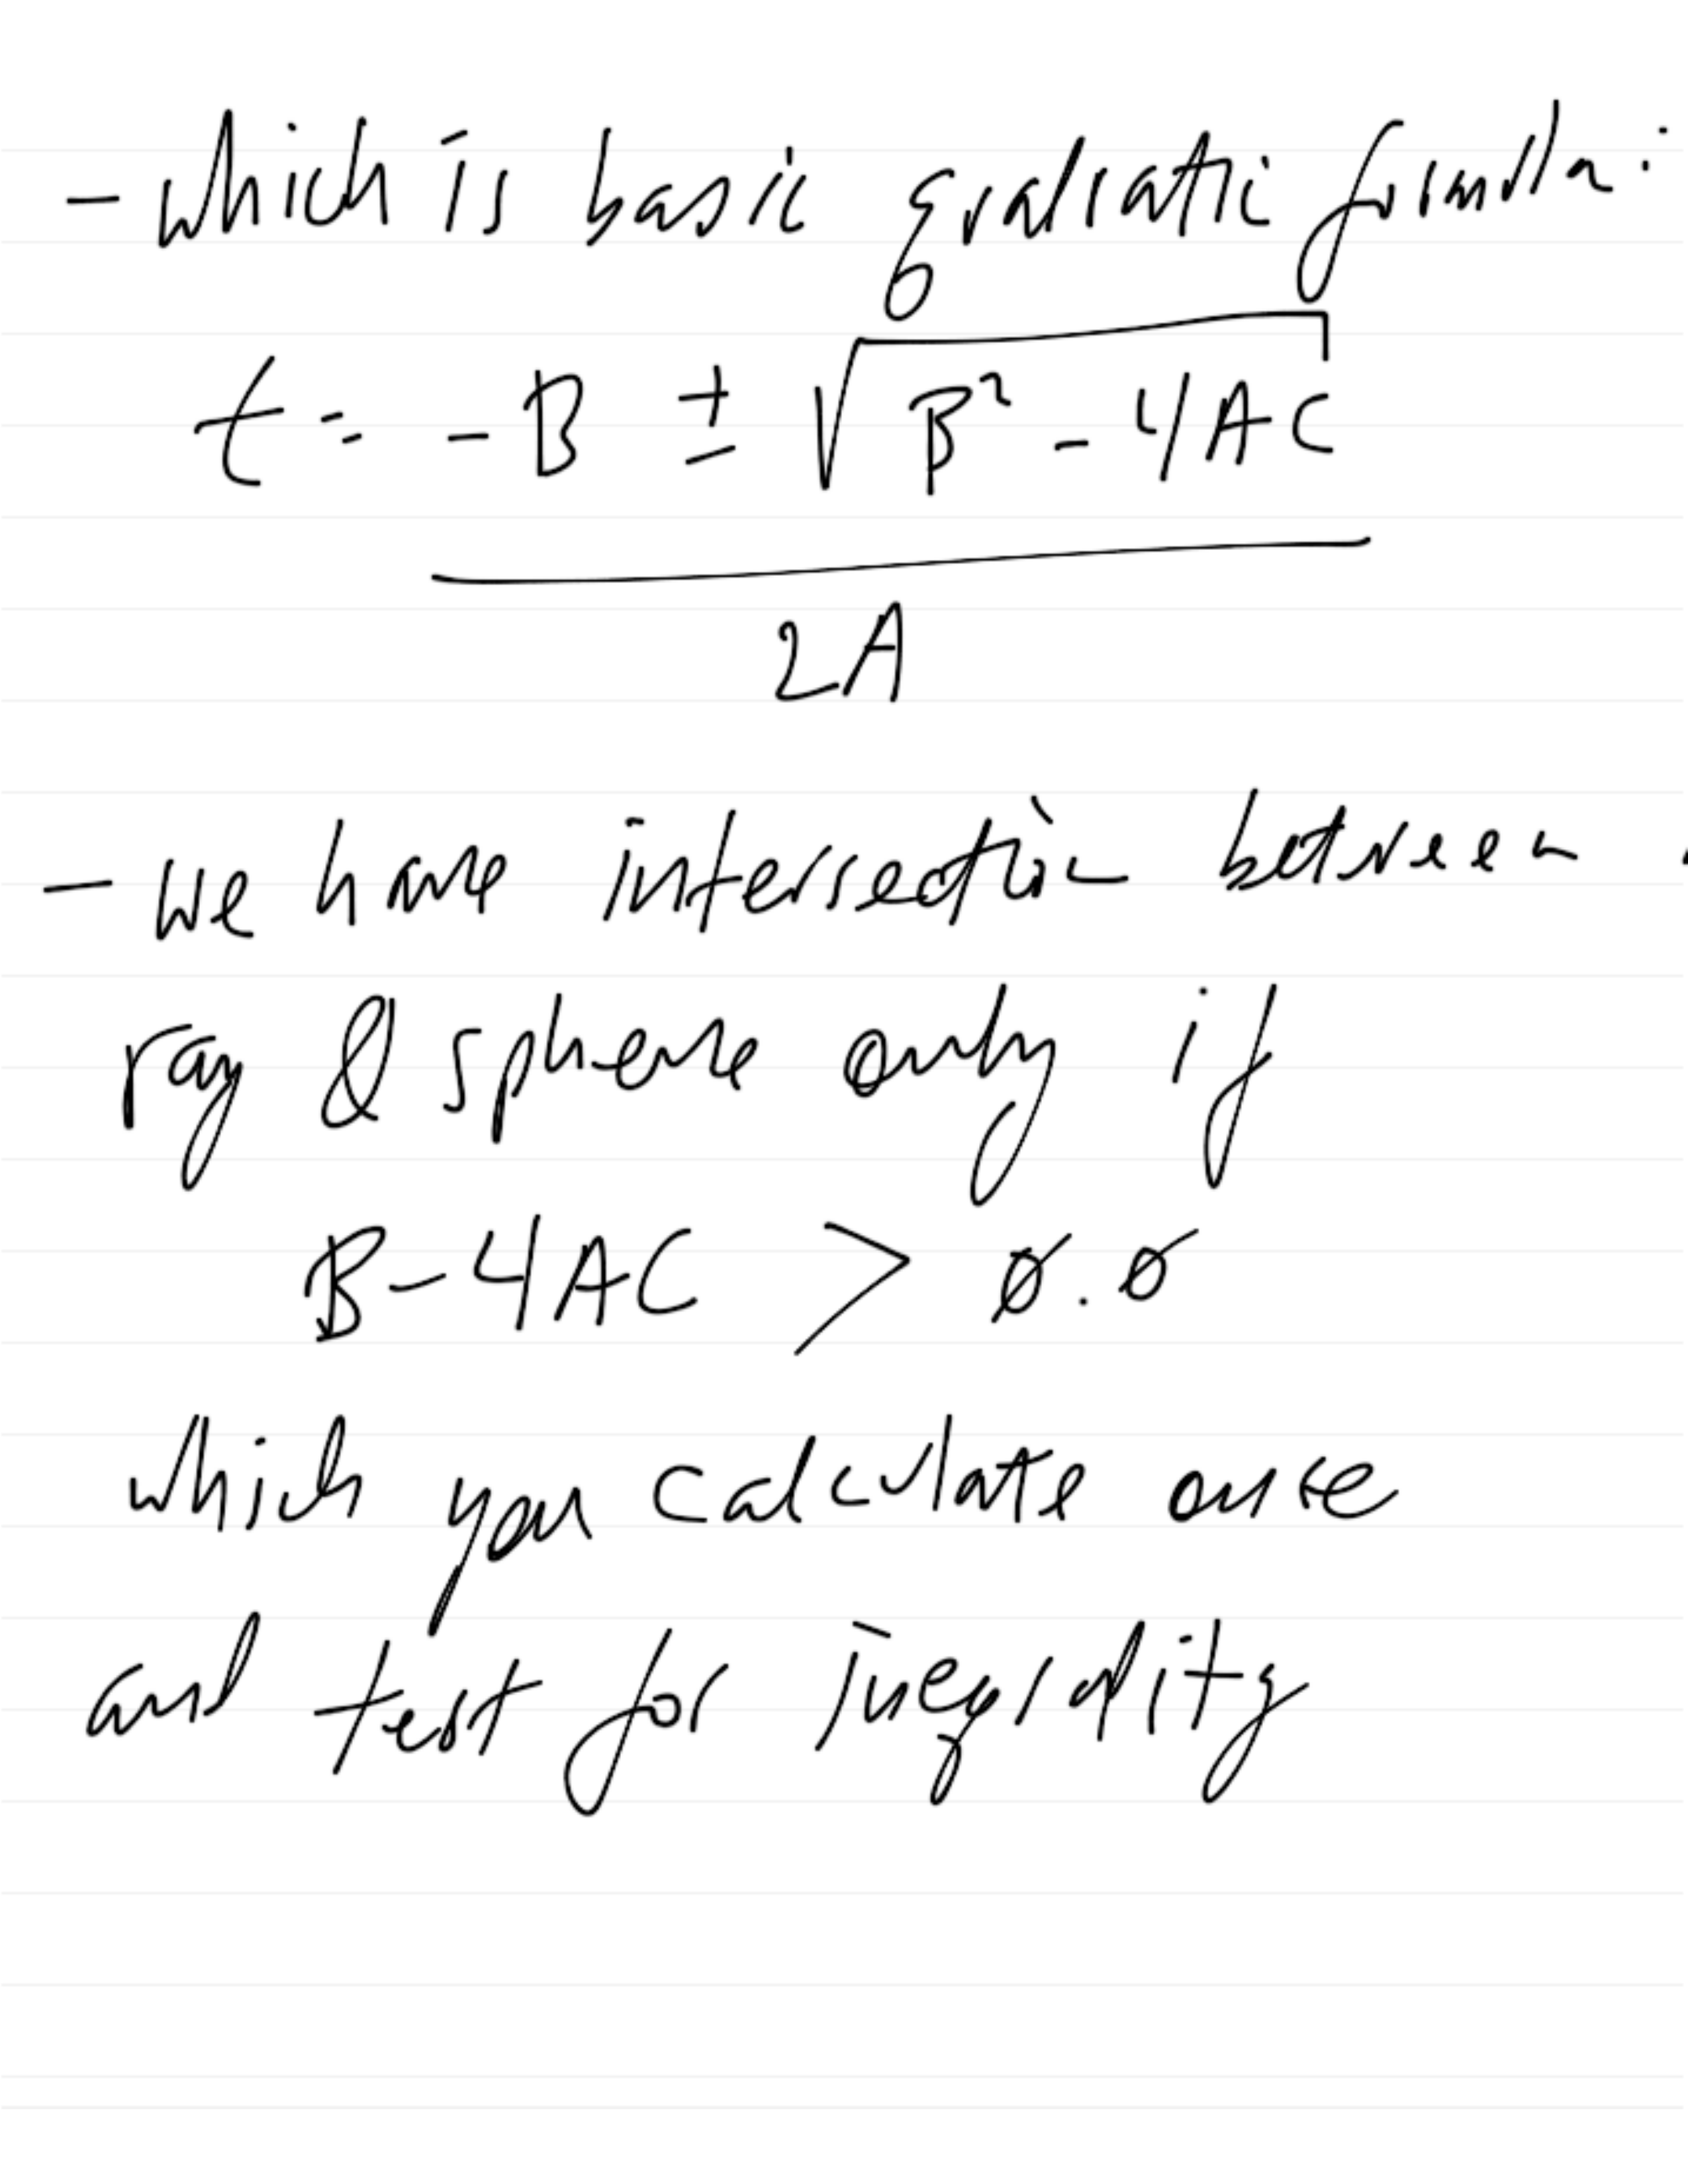 - which is basic quadratic formula:
t = -B ± √B² - 4AC
2A
- we have intersection between
ray & sphere only if
B-4AC > 0.0
which you calculate once
and test for inequality